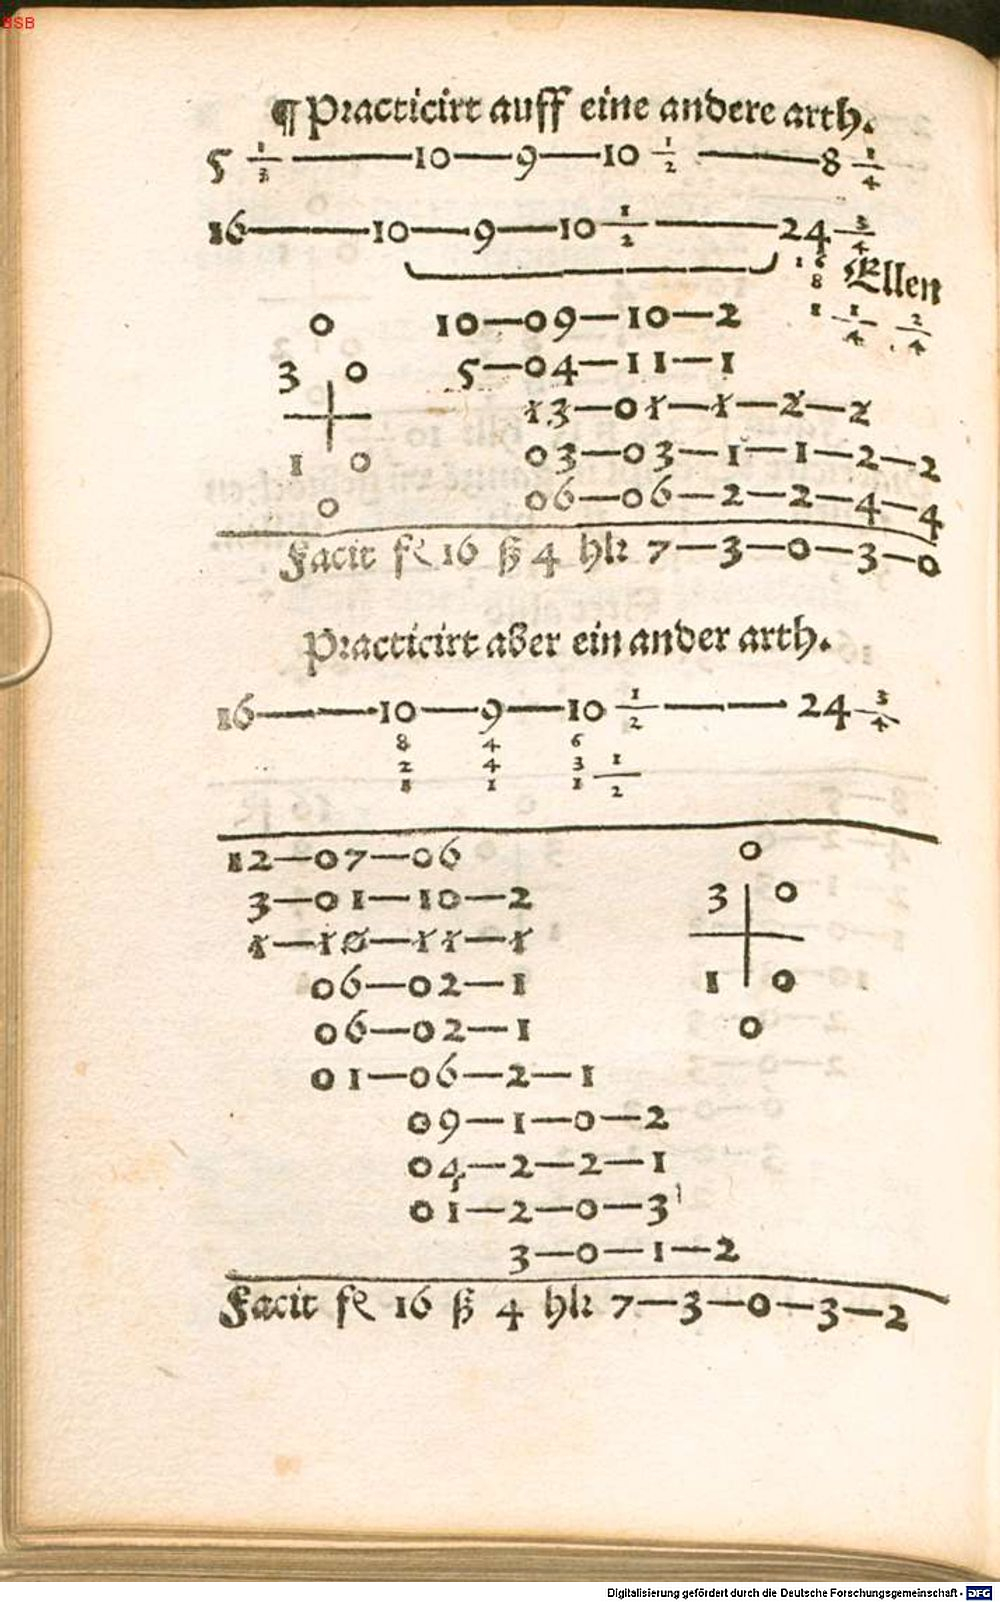 BSB
¶ Practicirt auff eine andere arth.
5 1/3 — 10 — 9 — 10 1/2 — 8 1/4
16 — 10 — 9 — 10 1/2 — 24 3/4
16 Ellen
8
1 1/4 2/4
0 10—09—10—2
3 0 5—04—11—1
13—01—1—2—2
1 0 03—03—1—1—2—2
0 06—06—2—2—4—4
Facit fl 16 ß 4 hlr 7—3—0—3—0
Practicirt aber ein ander arth.
16 — 10 — 9 — 10 1/2 — 24 3/4
8 4 6
2 4 3 1/2
8 1 1
12—07—06 0
3—01—10—2 3 0
1—10—11—1
06—02—1 1 0
06—02—1 0
01—06—2—1
09—1—0—2
04—2—2—1
01—2—0—3
3—0—1—2
Facit fl 16 ß 4 hlr 7—3—0—3—2
Digitalisierung gefördert durch die Deutsche Forschungsgemeinschaft - DFG